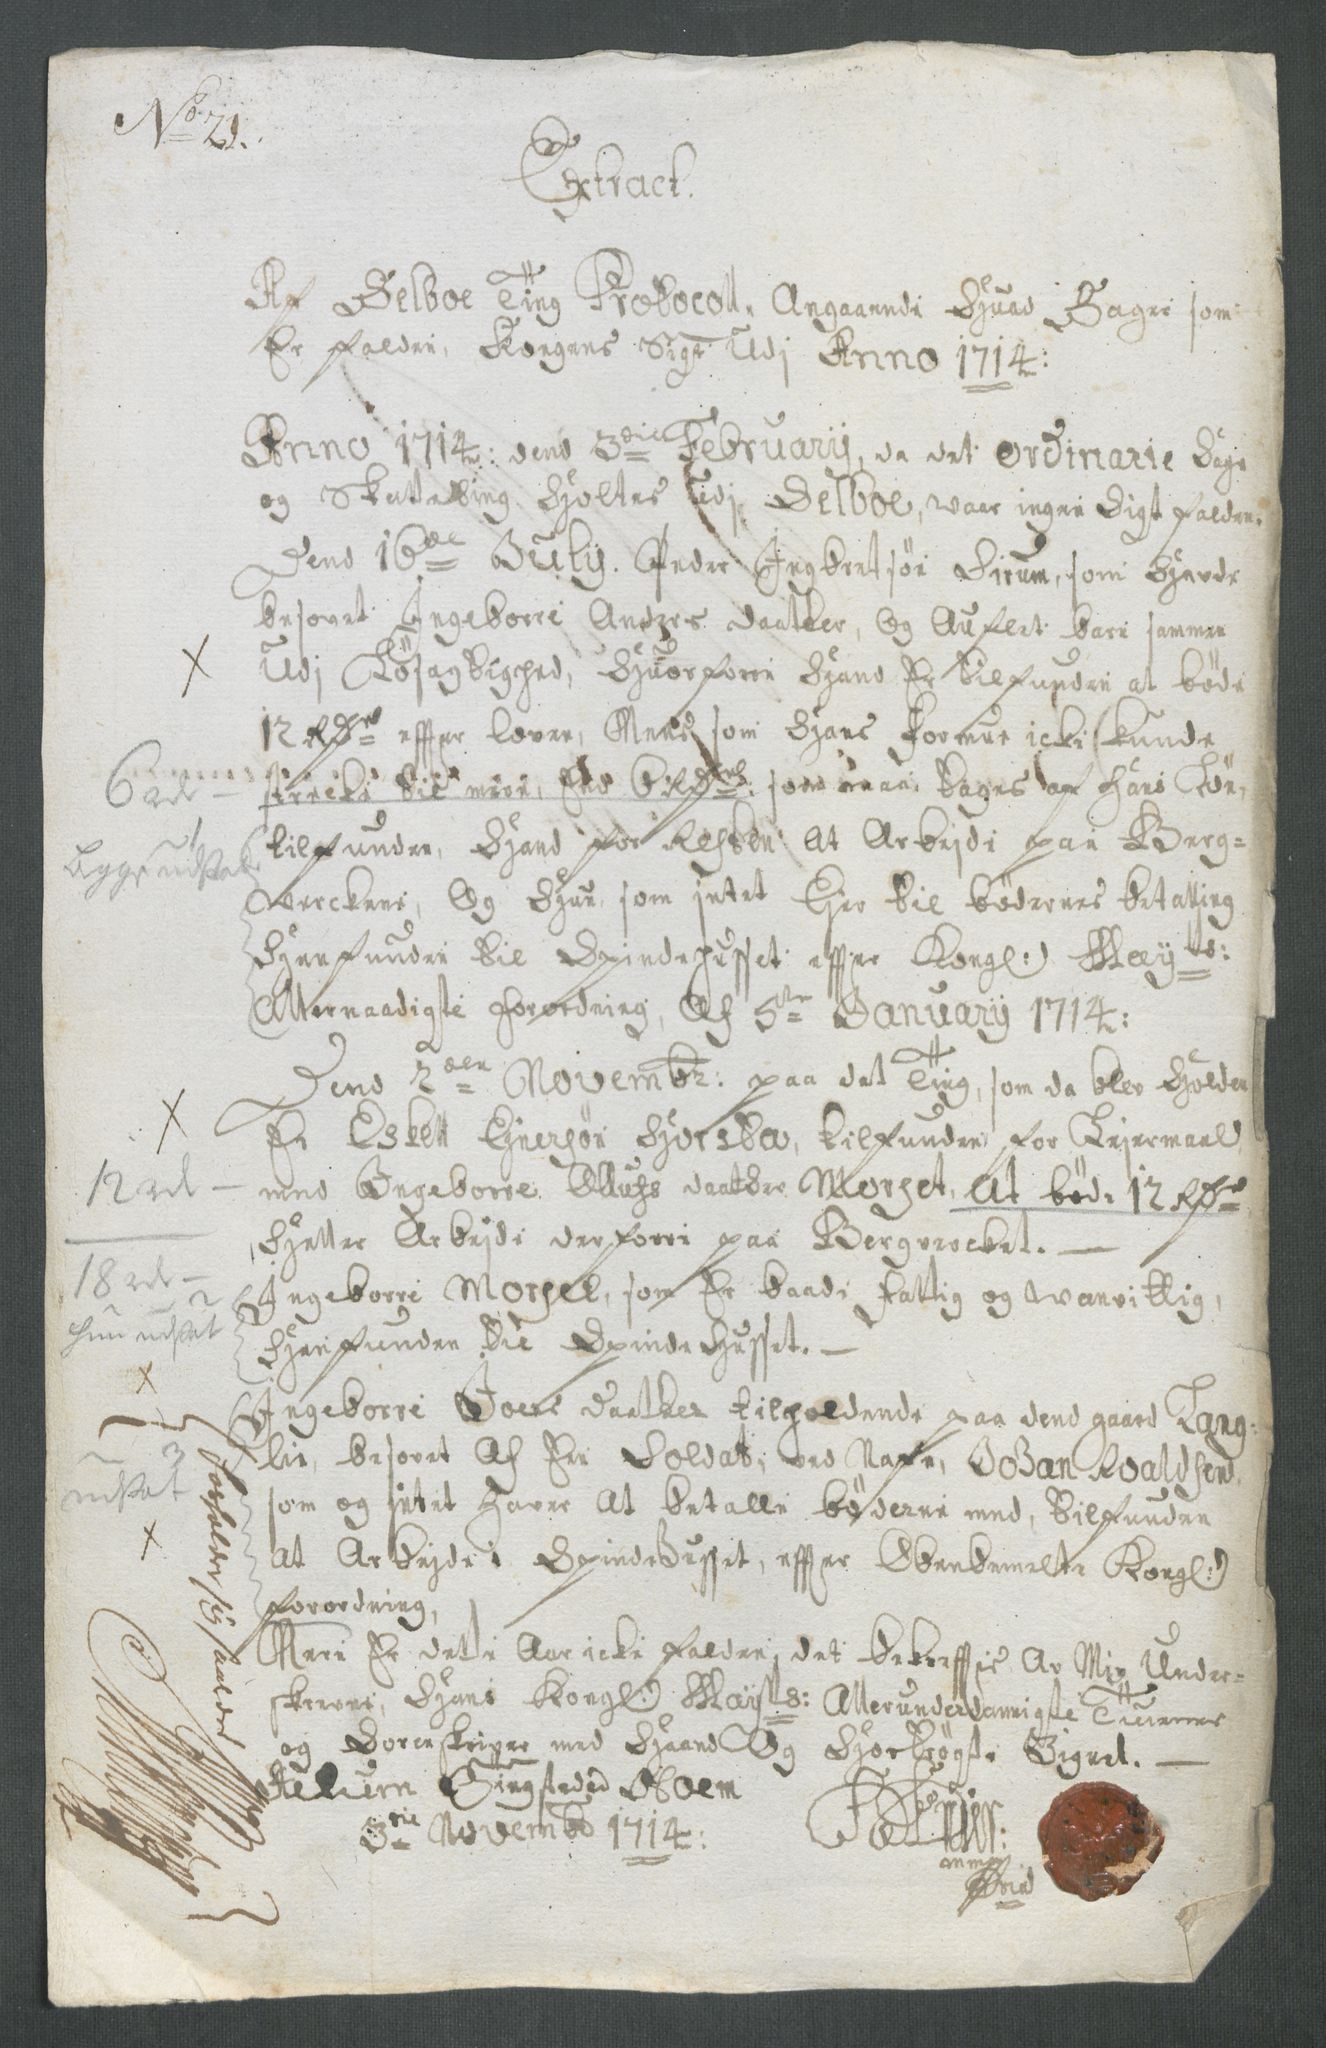 No 21.
Extract.
Af Selboe Ting Protocoll, Angaaende Huad Sager som
Er falden, Kongens Sigt Udj Anno 1714:
Anno 1714: dend 3die February, da det ordinarie Sage
og Skatteting Holtes udj Selboe, waar ingen Sigt falden.
Dend 16de July. Peder Ingbretsøn Sirum, som Hafde
besovet Ingeborre Anders daatter, Og Auflet barn sammen
Udj Løsagtighed, Huorforre Hand Er tilfunden at bøde
12 Rdr effter loven, Mens som Hans formue icke kunde
strecke til mere, End 6 Rdr: som maa tages af hans Løn,
tilfunden, Hand for Resten at Arbejde paa Berg-
verckene, Og Hun, som intet Ejer til bødernes betalling
Henfunden til Spindehusset effter Kongl: Mayts:
Allernaadigste forordning, Af 5te January 1714:
Dend 2den Novembr: paa det Ting, som da blev Holden
Er Eskell Ejnersøn tilfunden for Lejermaal
med Ingeborre Oluhs daatter Morset, At bøde 12 Rdr
Heller Arbejde derforre paa Bergvercket. —
Ingeborre Morset, som Er baade fattig og wanvittig,
Henfunden til Spindehusset. —
Ingeborre Joens daatter tilholdende paa dend gaard Lang-
lie, besovet Af Een Soldat, ved Nafn, Johan Roaldsen
som og intet haver At betalle bøderne med, tilfunden
at Arbejde i Spindehusset, effter Ovenbemelte Kongl:
forordning,
Mere Er dette Aar icke falden, det bekreffter Av Min Under-
skrevne, Hans Kongl: Mayts: Allerunderdannigste Tiener
og Sorenskriver med Haand Og Hoströgte Signet. —
Actum Tingsteded Moem
3die Novemb: 1714:
mmp
6 rd —
12 rd —
18 rd —
hun udsat
udsat